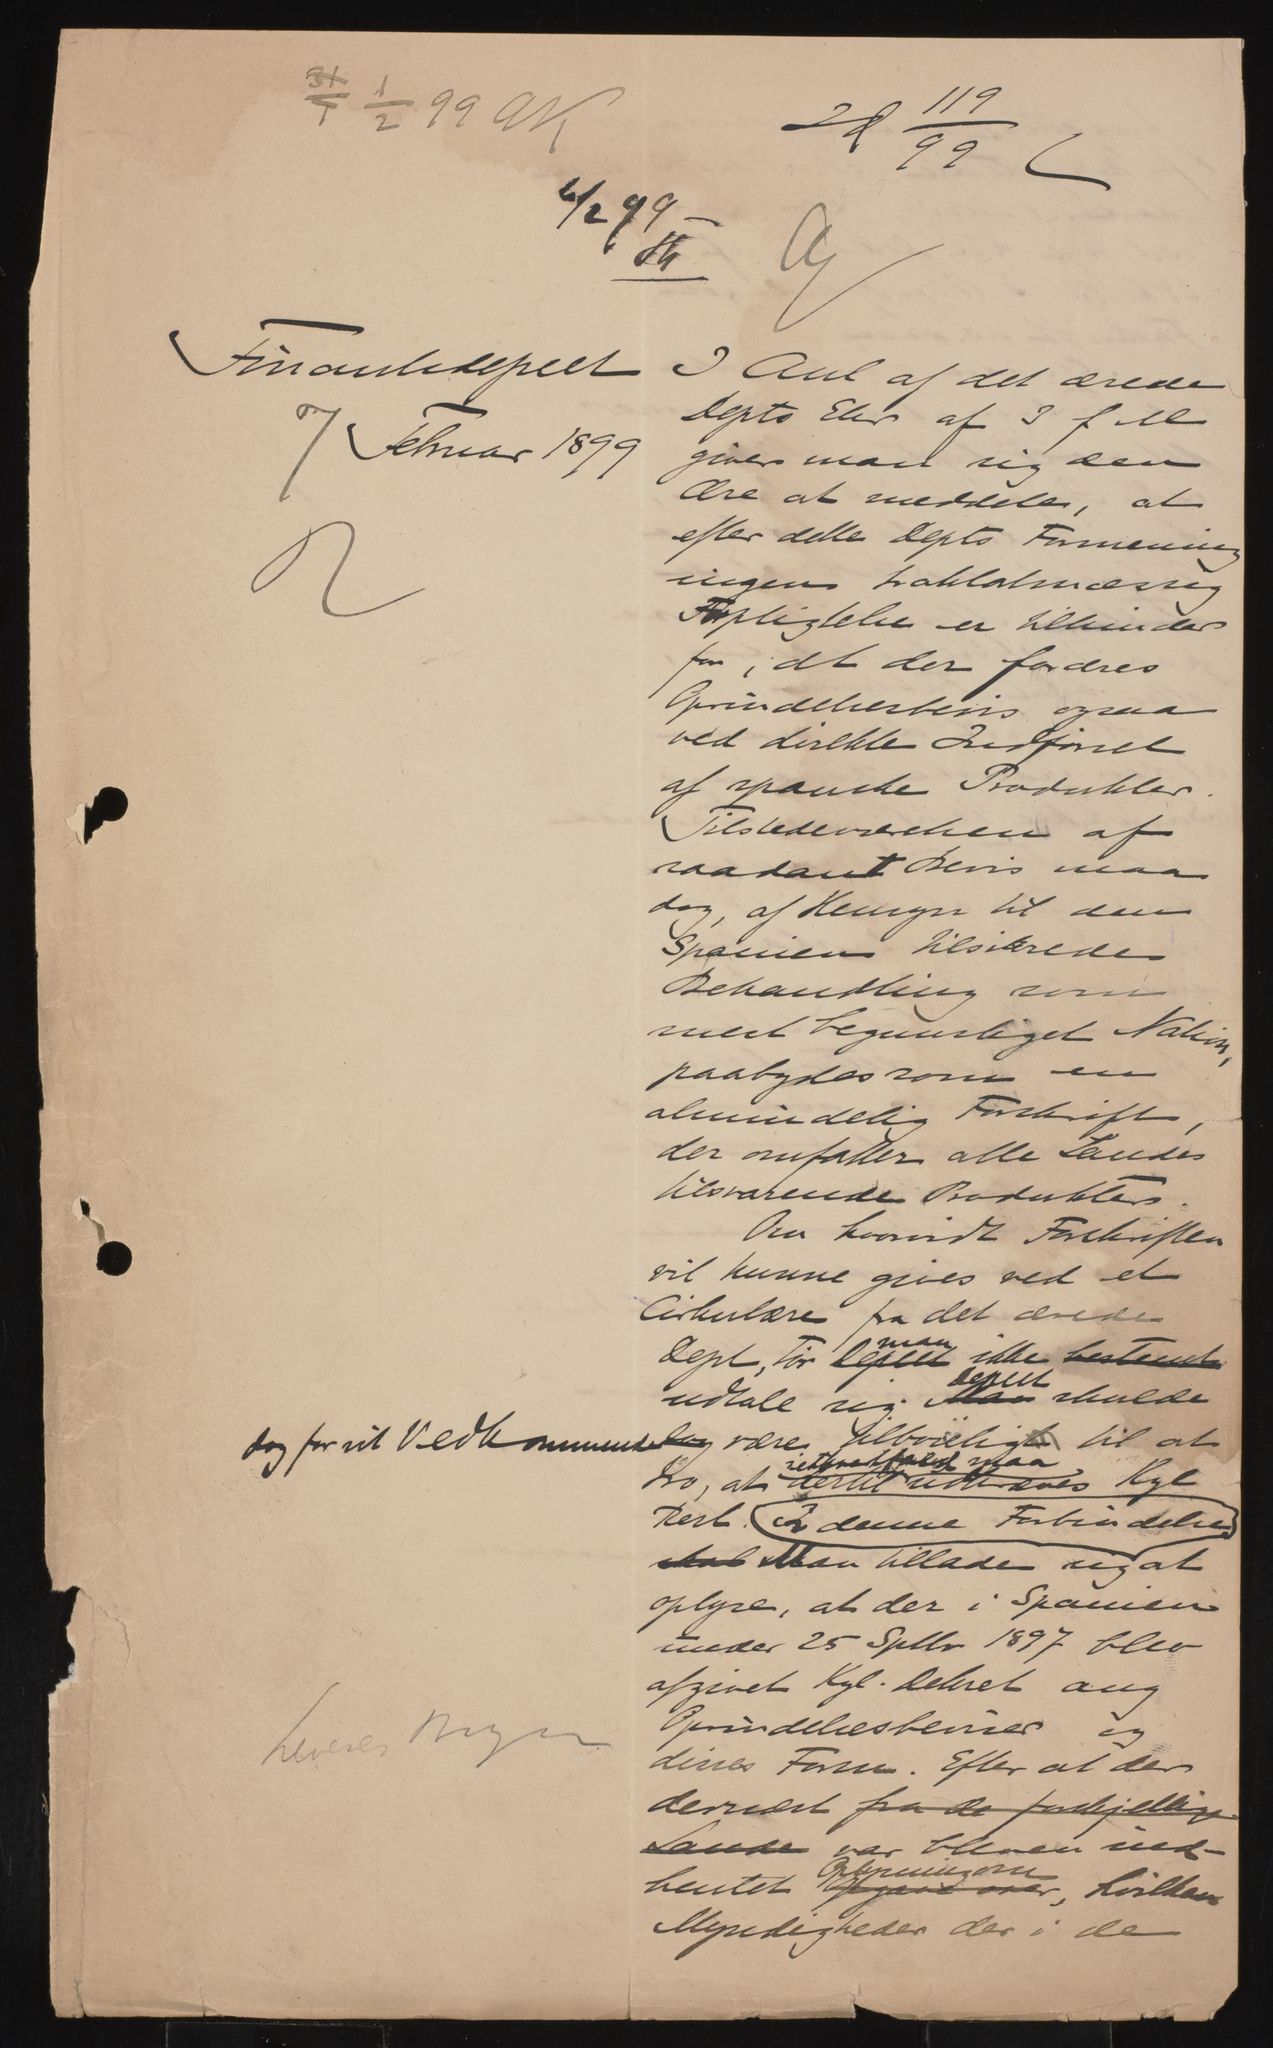 31/1 1/2 99 AK
119/99
4/2 99
Finantsdeptet
7 Februar 1899
I Anl af det ærede
Depts Skr af 3 f M
giver man sig den
Ære at meddele, at
efter dette Depts Formening
ingen traktatmæssig
Forpligtelse er tilhinder
for, at der fordres
Oprindelsesbevis ogsaa
ved direkte Indførsel
af spanske Produkter.
Tilstedeværelsen af
saadant Bevis maa
dog, af Hensyn til den
Spanien tilsikrede
Behandling som
mest begunstiget Nation,
paabydes som en
almindelig Forskrift,
der omfatter alle Landes
tilsvarende Produkter.
Om hvorvidt Forskriften
vil kunne gives ved et
Cirkulære fra det ærede
Dept, tør Deptet man ikke bestemt
udtale sig. Man Deptet skulde
dog for sit Vedkommende
dog være tilbøieligt til at
tro, at dertil udkræves maa Kgl
Resl. I denne Forbindelse
skal Man tillade sig at
oplyse, at der i Spanien
under 25 Septbr 1897 blev
afgivet Kgl. Dekret ang
Oprindelsesbeviser og
disses Form. Efter at der
dernæst fra de forskjellige
Lande var bleven ind-
hentet Opgave over Oplysning om, hvilke
Myndigheder der i de